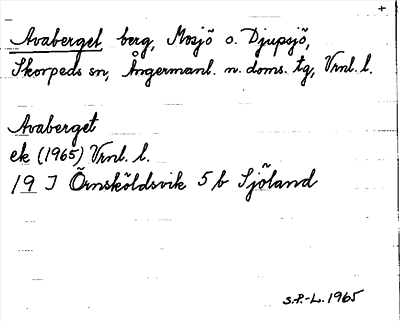 +
Avaberget berg, Mosjö o. Djupsjö,
Skorpeds sn, Ångermanl. n. doms. tg, Vrnl. l.
Avaberget
ek (1965) Vrnl. l.
19 J Örnsköldsvik 5 b Sjöland
S.P.-L. 1965